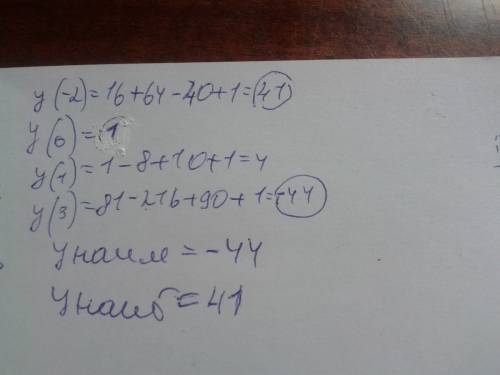 y(-2)=16+64-40+1=41
y(0)=1
y(1)=1-8+10+1=4
y(3)=81-216+90+1=-44
yнаим=-44
yнаиб=41